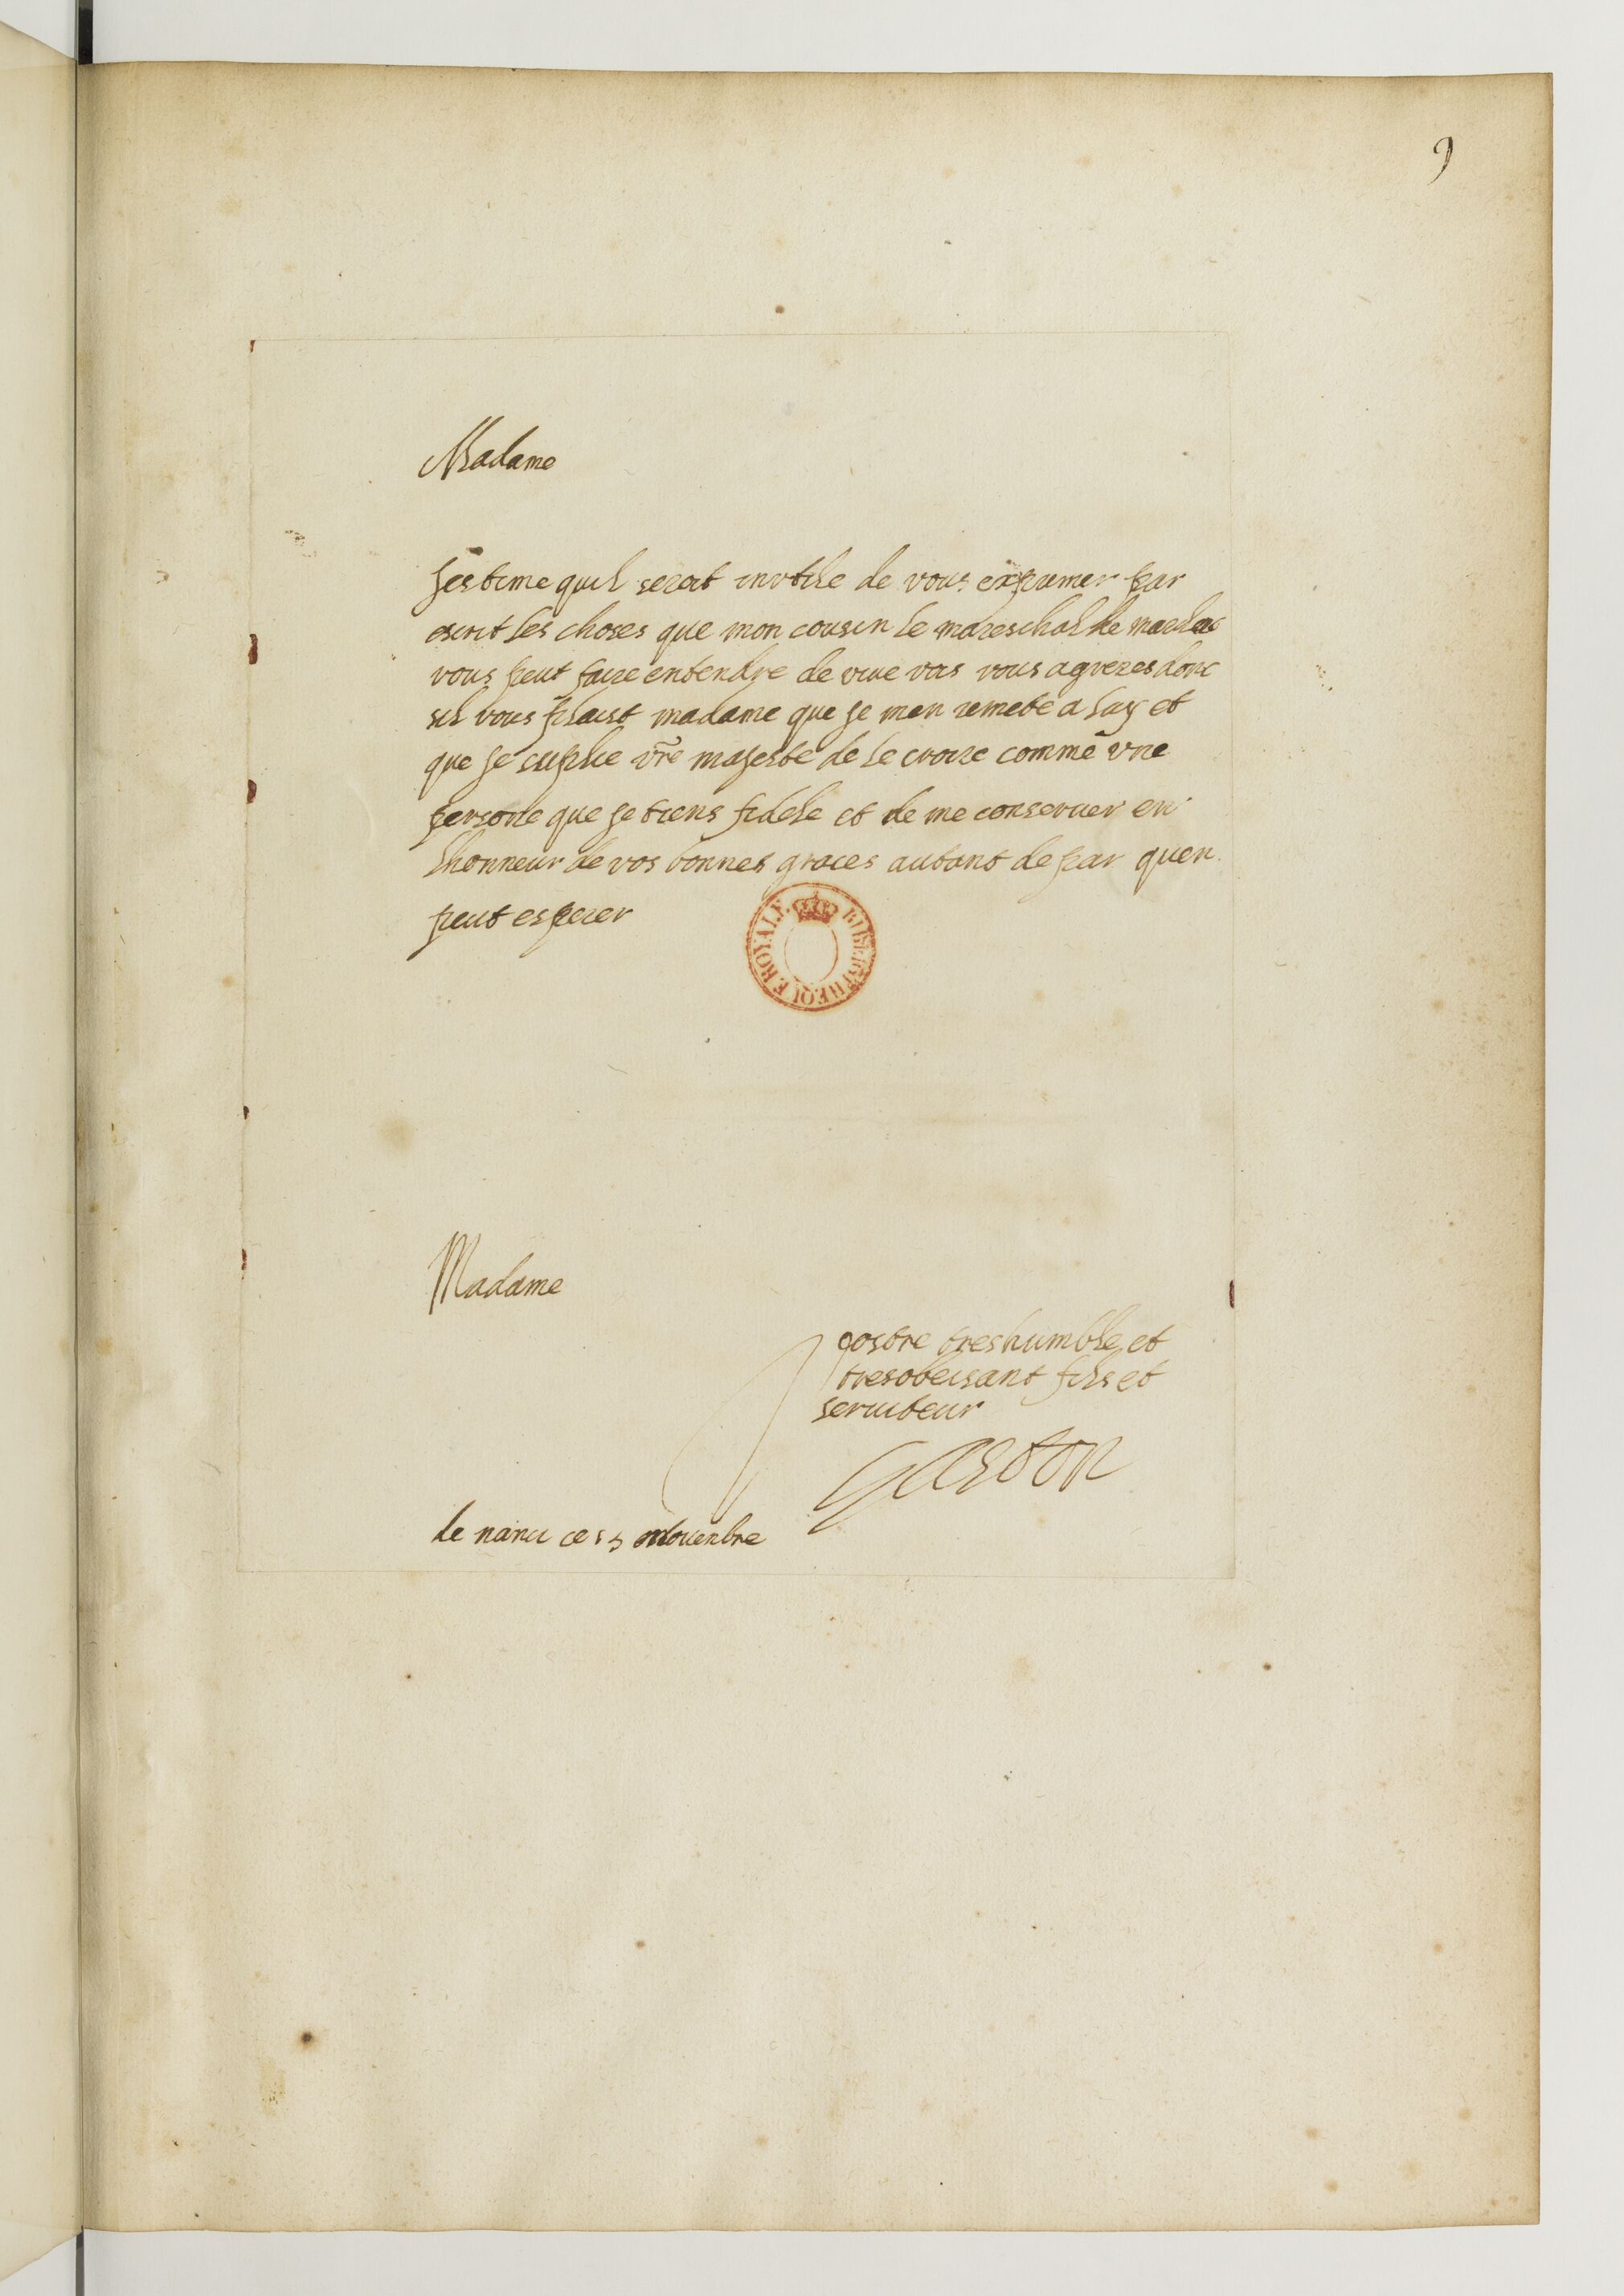 9
Madame
Jestime quil seroit invtile de vous exprimer par
escrit les choses que mon cousin le mareschal de marilac
vous peut faire entendre de vive vois vous agreres donc
sil vous plaist madame que je men remete a luy et
que je suplie vre majesté de le croire comme vne
persone que je tiens fidele et de me conseruer en
lhonneur de vos bonnes graces autant de par quen
peut esperer
BIBLIOTHEQUE ROYALE
Madame
vostre treshumble et
tresobeisant fils et
seruiteur
Gaston
de nanci ce 15 nouenbre